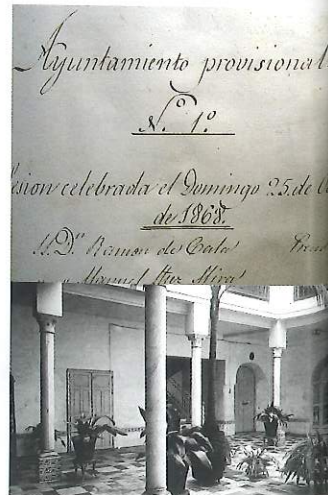 Ayuntamiento provisional
N.º 1.º
esion celebrada el Domingo 25. de
de 1868.
D.n Ramon de Cala
Manuel